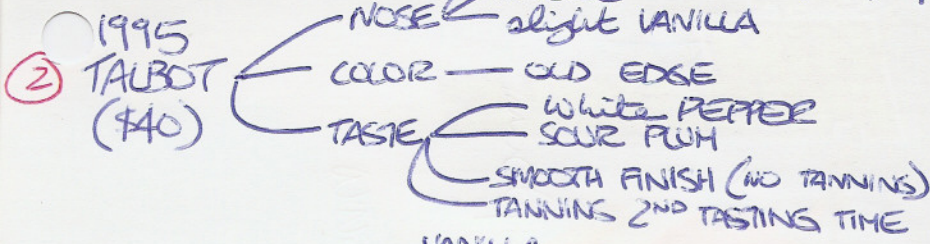 1995
② TALBOT
($40)
NOSE
slight VANILLA
COLOR — OLD EDGE
TASTE
White PEPPER
SOUR PLUM
SMOOTH FINISH (NO TANNINS)
TANNINS 2ND TASTING TIME
VANILLA